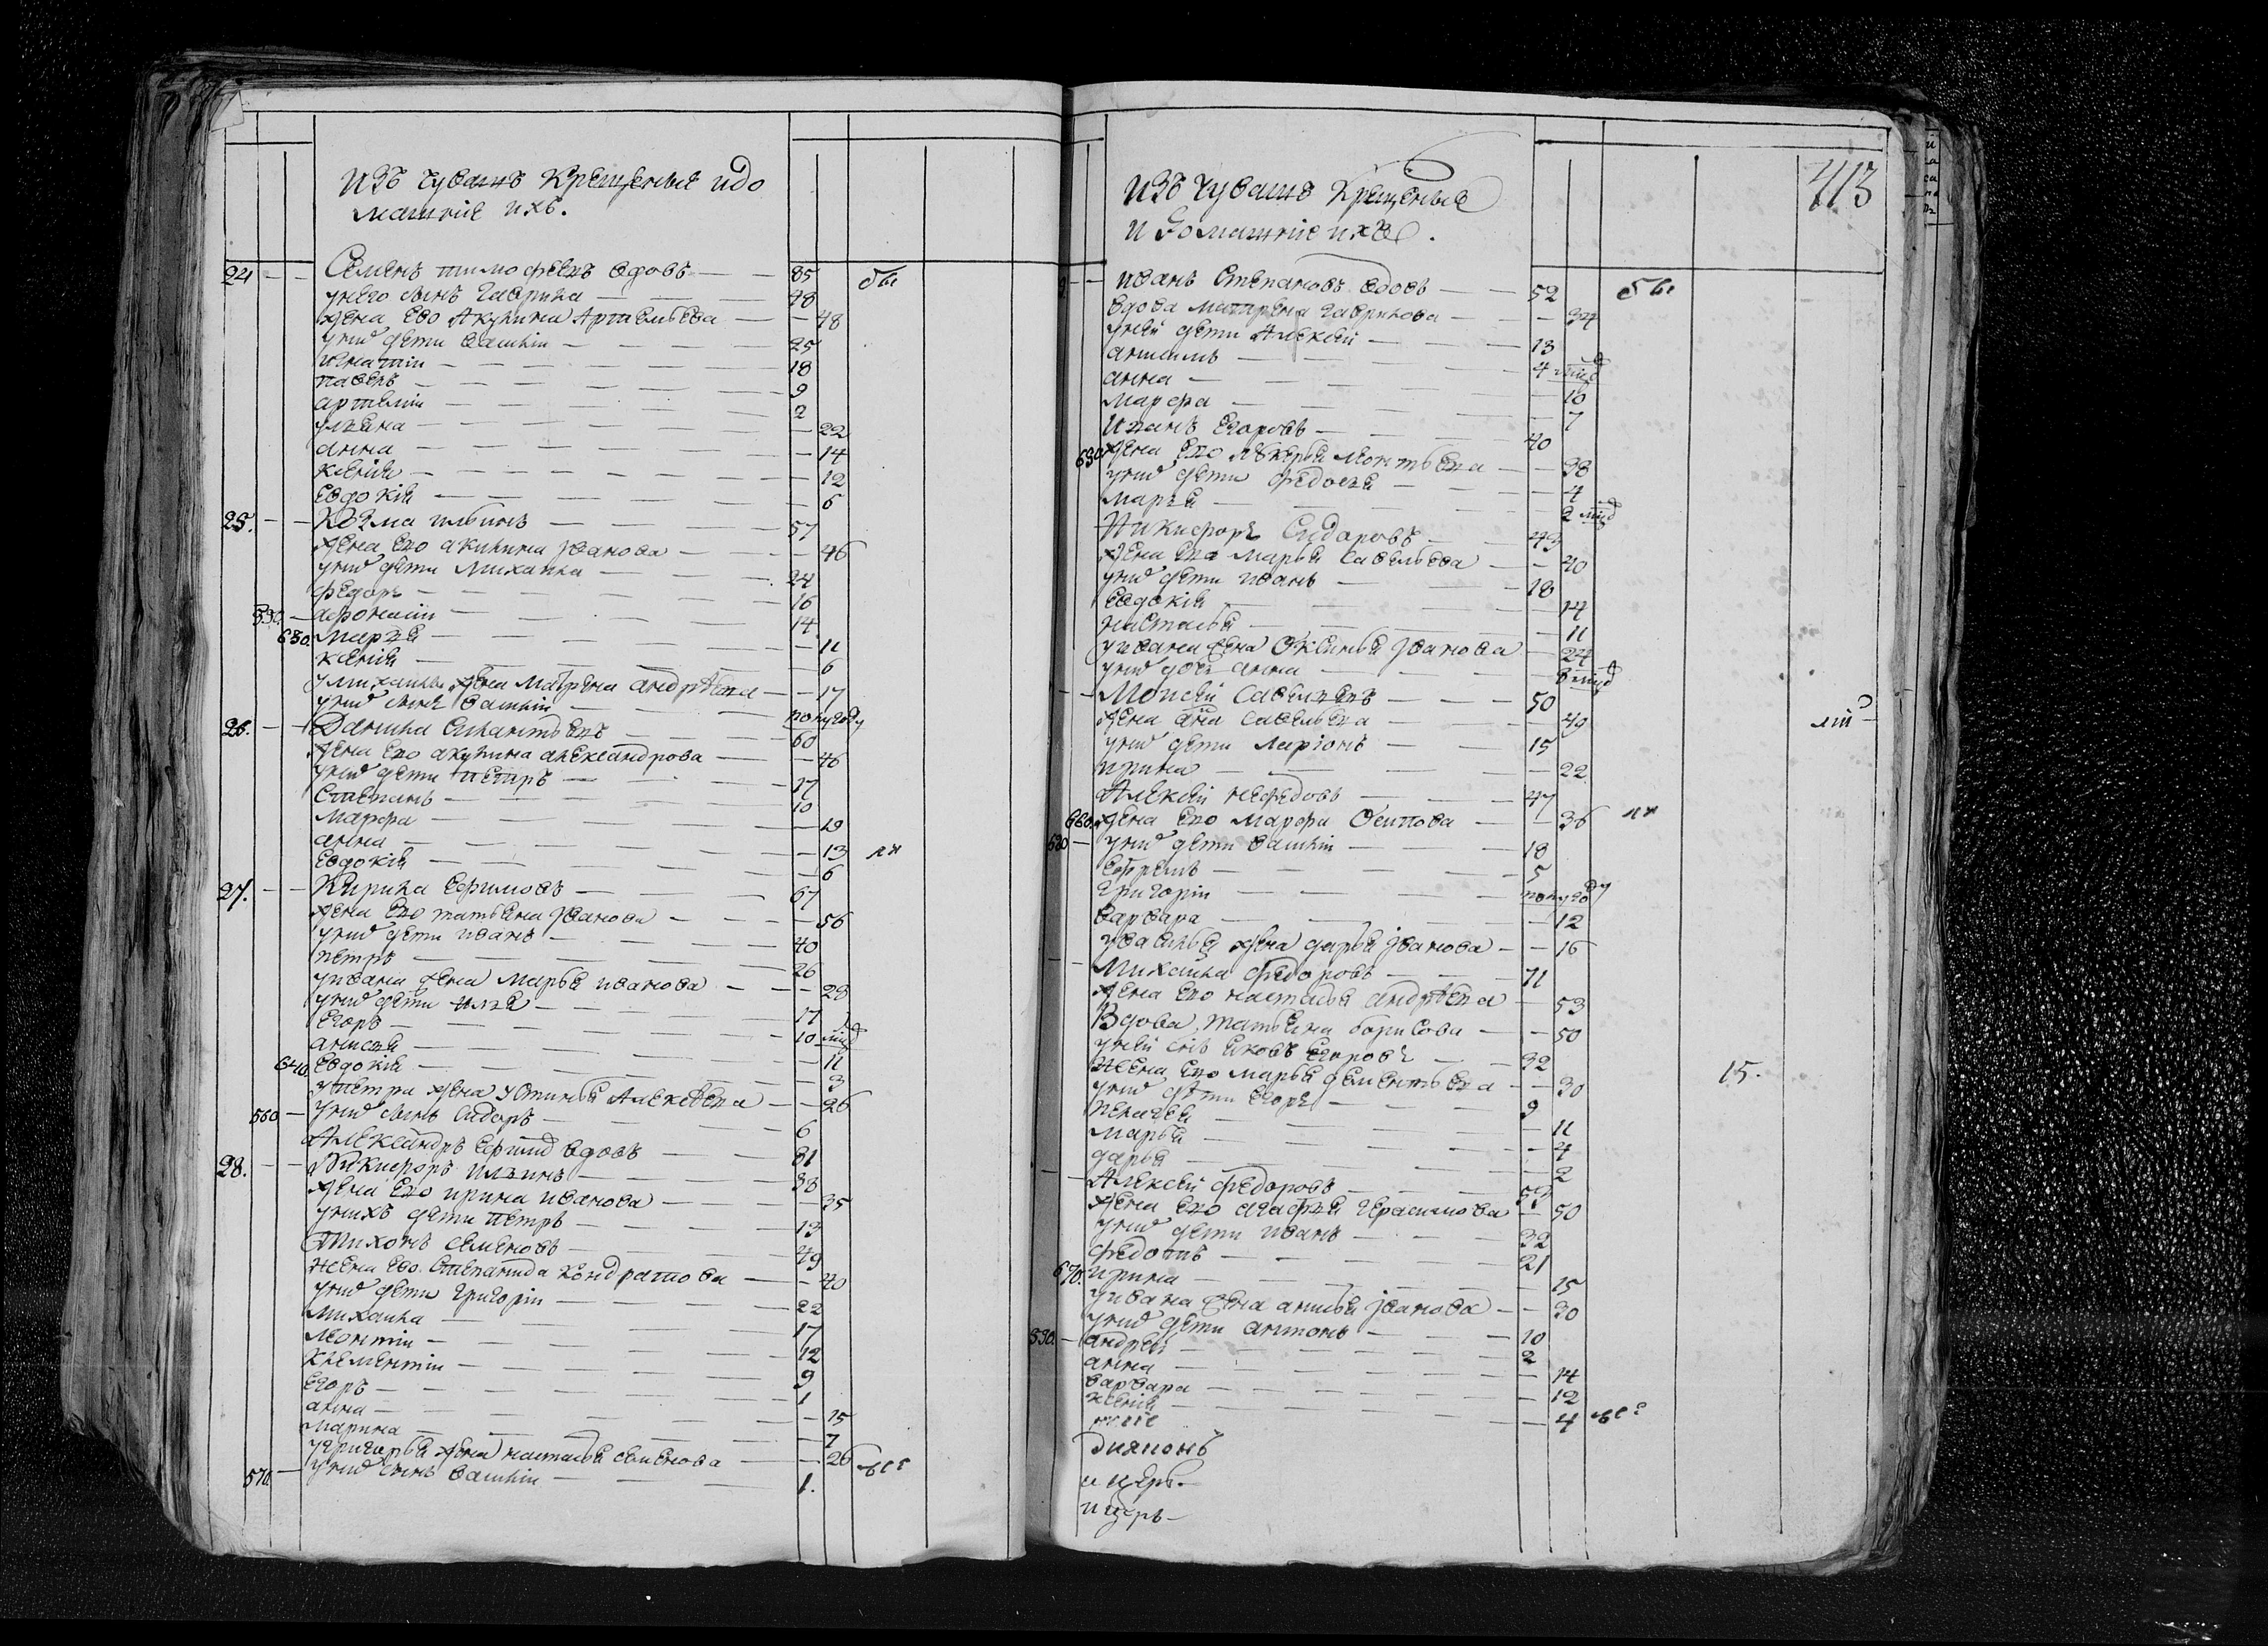 изъ чувашъ крещеные и до
машніе ихъ.
24 Семенъ тимофеевъ вдовъ 85 бы
у него сынъ гаврила 48
жена ево Акулина Артемьева 48
у них дети василіи 25
игнатіи 18
павелъ 9
артеміи 2
ульяна 22
анна 14
ксенія 12
Евдокія 6
25. Козма ильинъ 57
жена ево акилина іванова 46
у них дети михаила 24
федоръ 16
550. афонасіи 14
630. марѳя 11
ксенія 6
у михаила жена матрена андрѣева 17
у них сынъ василіи полугоду
26. Данила силантьевъ 60
жена ево акулина александрова 46
у них дети петръ 17
Степанъ 10
марфа 19
анна 13 ля
Евдокія 6
27. Кирила Ефимовъ 67
жена ево татьяна іванова 56
у них дети иванъ 40
петръ 26
у ивана жена марья иванова 28
у них дети илья 17
Егоръ 10
анисья 11
640. Евдокія 3
у петра жена устинья Алексеева 26
560 у них сынъ сидоръ 6
Александръ вдовъ 81
28. Никифоръ ильинъ 38
жена ево ирина иванова 35
у нихъ дети петръ 13
Тихонъ семеновъ 49
жена ево степанида кондратова 40
у них дети григоріи 22
михаила 17
леонтіи 12
клементіи 9
Егоръ 1
анна 15
марина 7
у григорья жена настасья семенова 26
570. у них сынъ василіи 1.
изъ чувашъ крещеные
и домашніе ихъ.
413
иванъ Степановъ вдовъ 52 бы
вдова матрена гаврилова 34
у неи дети Алексеи 13
4
анна 10
марфа 7
Иванъ Егоровъ 40
650 жена ево лукерья леонтьева 38
у них дети федосья 4
марья 2
Никифоръ Сидаровъ 43
жена ево марья савельева 40
у них дети иванъ 18
Евдокія 14
настасья 11
у ивана жена оксинья іванова 24
у них дочь анна
Моисеи савельевъ 50
жена анна савельева 49 ліи
у них дети ларіонъ 15
ирина 22
Алексеи нефедовъ 47
660. жена ево марфа осипова 36
580 у них дети василіи 18
Ефремъ 5
григоріи полугоду
варвара 12
у василья жена дарья іванова 16
михаила федоровъ 71
жена ево настасья андрѣева 53
Вдова татьяна борисова 50
у неи снъ яковъ Егоровъ 32
жена ево марья дементьева 30 15.
у них дѣти Егоръ 9
пелагея 11
марья 4
дарья 2
Алексеи федоровъ
жена ево агафья герасимова 50
у них дети иванъ 32
федотъ 21
670. ирина 15
у ивана жена анисья іванова 30
у них дети антонъ 10
590. андреи 2
анна 14
варвара 12
ксенія 4
диаконъ